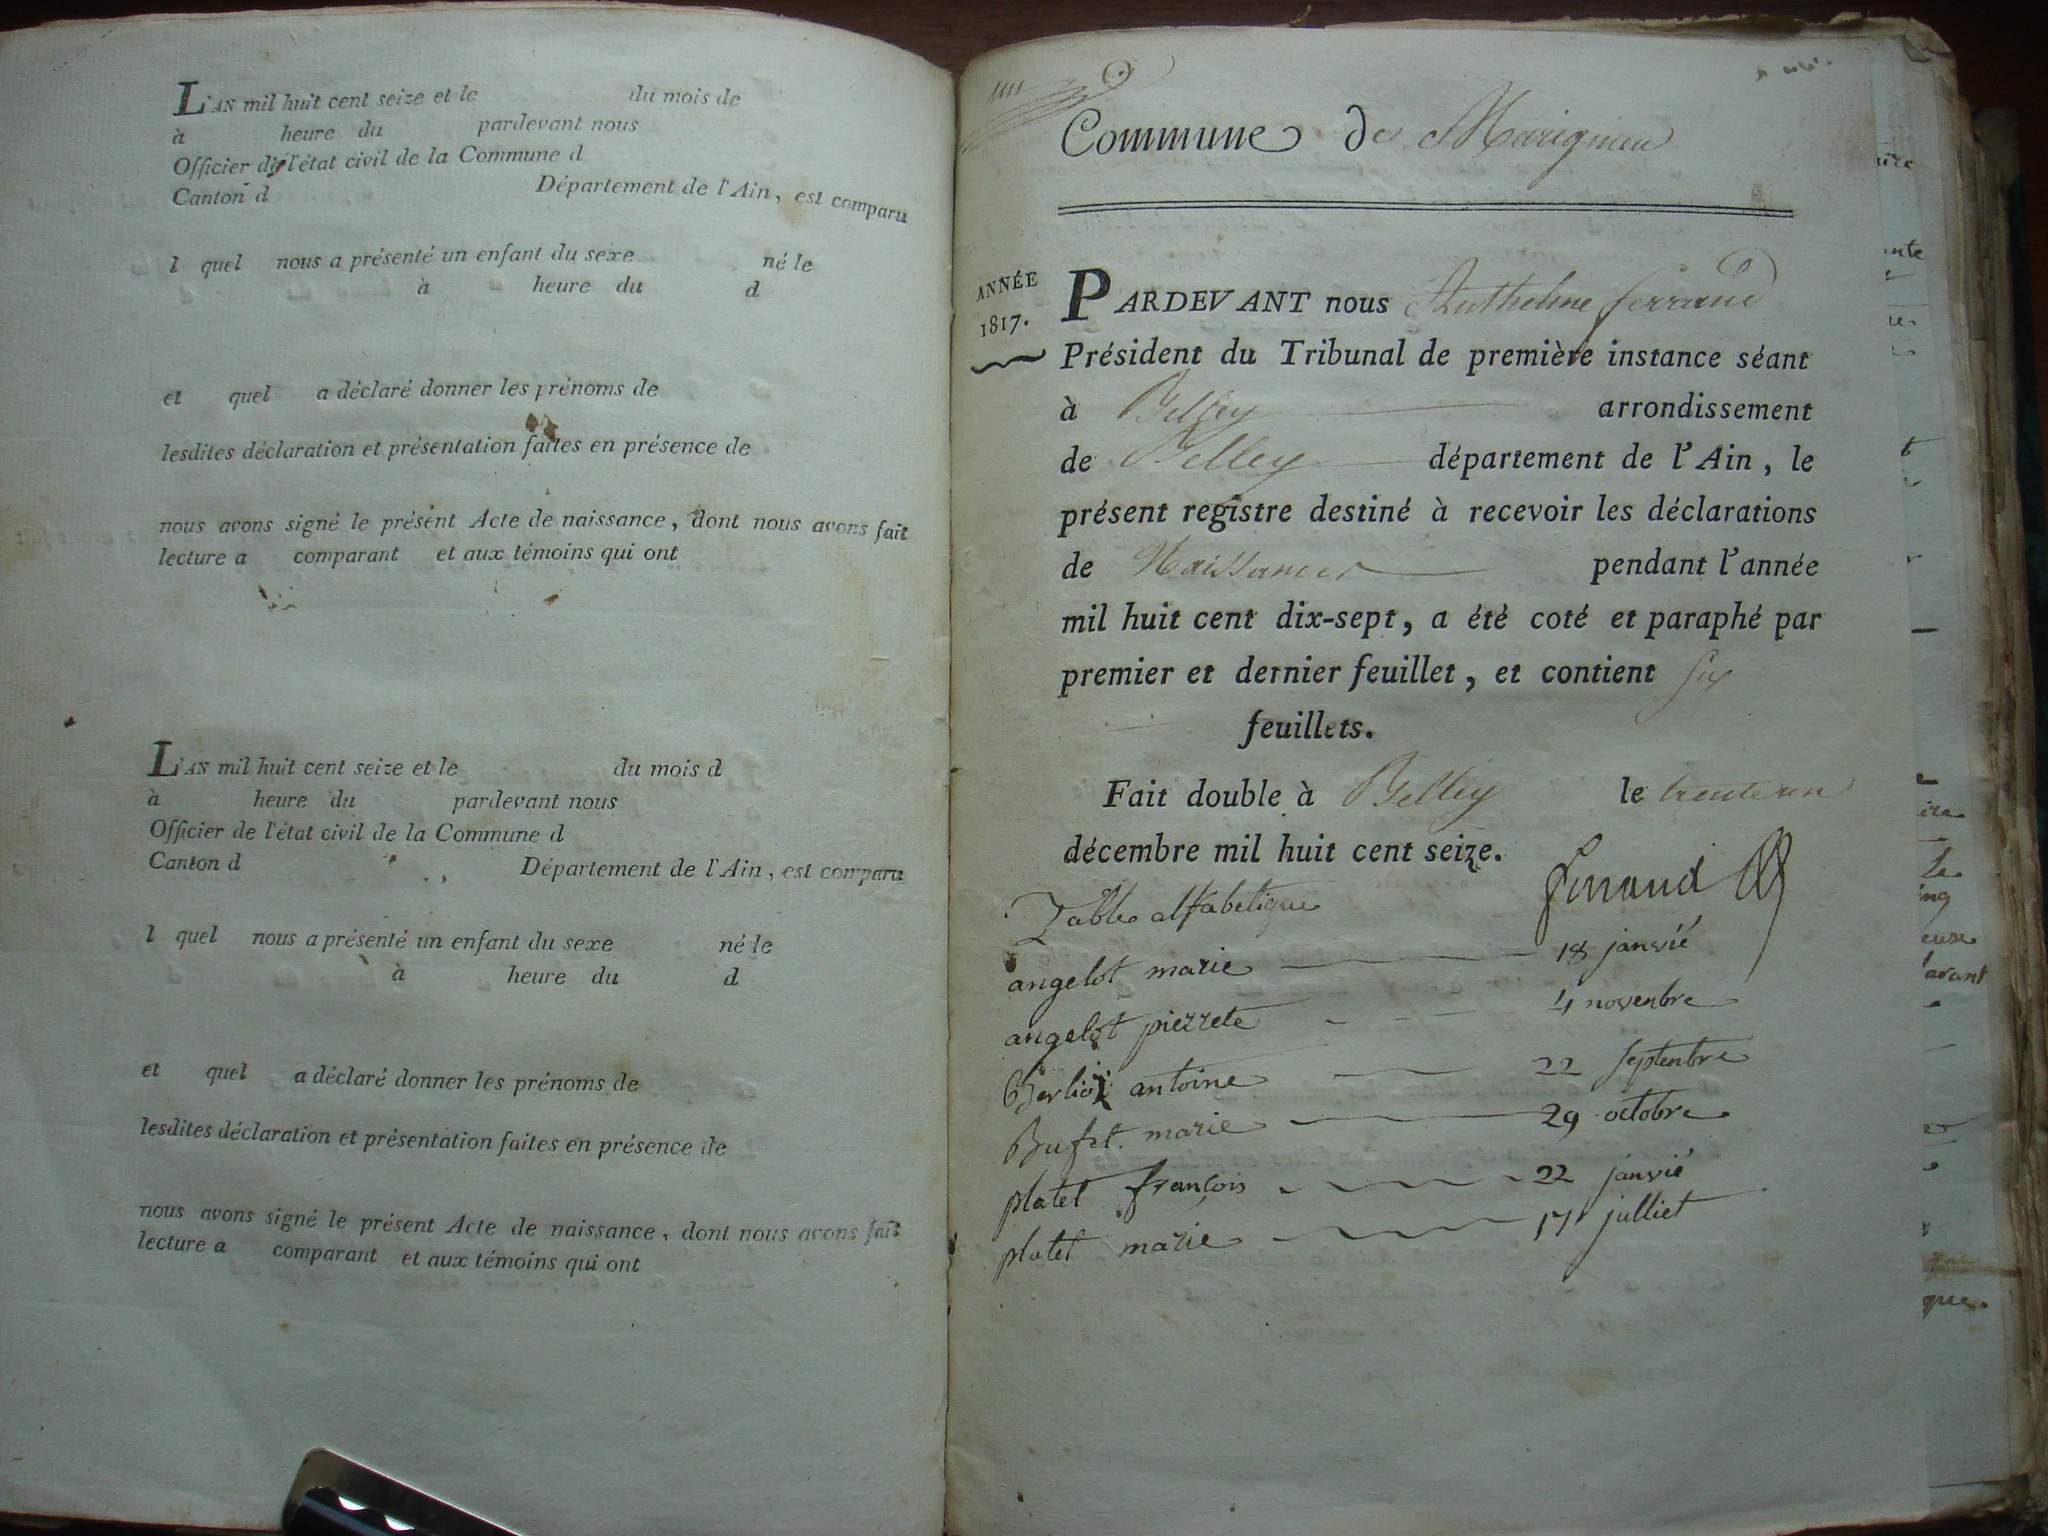 L'AN mil huit cent seize et le du mois de
à heure du pardevant nous
Officier de l'état civil de la Commune d
Canton d Département de l'Ain, est comparu
l quel nous a présenté un enfant du sexe né le
à heure du d
et quel a déclaré donner les prénoms de
lesdites déclaration et présentation faites en présence de
nous avons signé le présent Acte de naissance, dont nous avons fait
lecture a comparant et aux témoins qui ont
L'AN mil huit cent seize et le du mois d
à heure du pardevant nous
Officier de l'état civil de la Commune d
Canton d Département de l'Ain, est comparu
l quel nous a présenté un enfant du sexe né le
à heure du d
et quel a déclaré donner les prénoms de
lesdites déclaration et présentation faites en présence de
nous avons signé le présent Acte de naissance, dont nous avons fait
lecture a comparant et aux témoins qui ont
Commune de Marignieu
ANNÉE
1817.
PARDEVANT nous Anthelme ferrand
Président du Tribunal de première instance séant
à Belley arrondissement
de Belley département de l'Ain, le
présent registre destiné à recevoir les déclarations
de Naissances pendant l'année
mil huit cent dix-sept, a été coté et paraphé par
premier et dernier feuillet, et contient six
feuillets.
Fait double à Belley le trente un
décembre mil huit cent seize.
ferrand
Table alfabetique
angelot marie 18 janvié
angelot pierrete 4 novenbre
Berlioz antoine 22 septenbre
Bufet marie 29 octobre
platel françois 22 janvié
platel marie 17 julliet